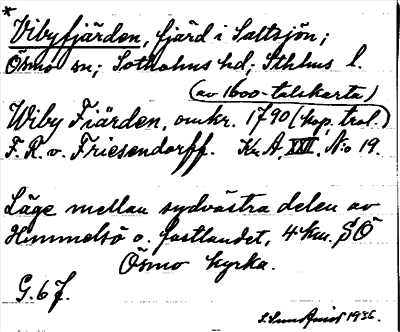 *
Vibyfjärden, fjärd i Saltsjön;
Ösmo sn; Sotholms hd; Sthlms l.
(av 1600-talskarta)
Wiby Fiärden, omkr. 1790 (kop. trol.
F. R. v. Friesendorff. Kr. A. XXII, N:o 19.
Läge mellan sydvästra delen av
Himmelsö o. fastlandet, 4 km. SÖ
Ösmo kyrka.
G. 6 J.
1936.